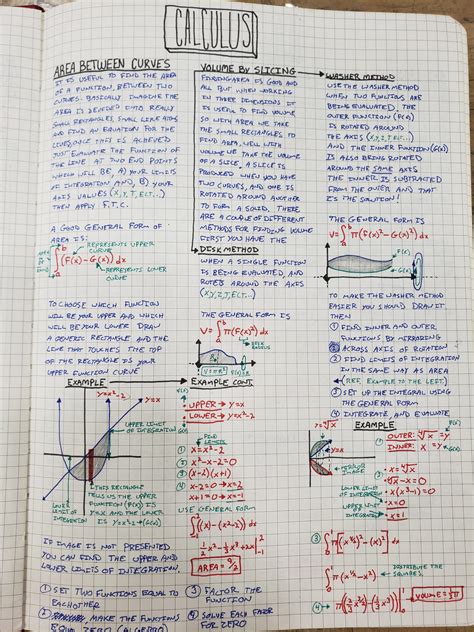 CALCULUS
AREA BETWEEN CURVES
IT IS USEFUL TO FIND THE AREA
OF A FUNCTION, BETWEEN TWO
CURVES. BASICALLY, IMAGINE THE
AREA IS DEVIDED INTO REALLY
SMALL RECTANGLES, SMALL LIKE
AND FIND AN EQUATION FOR THE
ONCE THIS IS ACHIEVED
JUST EVALUATE THE FUNCTION OF
THE LINE AT TWO END POINTS
WHICH WILL BE, A) YOUR LIMITS
OF INTEGRATION AND, B) YOUR
AXIS VALUES (X,Y,T,ETC...)
THEN APPLY F.T.C.
A GOOD GENERAL FORM OF
AREA IS:
REPRESENTS UPPER
CURVE
∫ₐᵇ (F(x)-G(x)) dx
REPRESENTS LOWER
CURVE
TO CHOOSE WHICH FUNCTION
WILL BE YOUR UPPER AND WHICH
WILL BE YOUR LOWER DRAW
A GENERIC RECTANGLE AND THE
LINE THAT TOUCHES THE TOP
OF THE RECTANGLE IS YOUR
UPPER FUNCTION CURVE
EXAMPLE
y=x²-2
y=x
UPPER LIMIT
OF INTEGRATION
THIS RECTANGLE
TELLS US THE UPPER
FUNCTION (F(x)) IS
Y=X AND THE LOWER
IS Y=x²-2 (G(x))
LOWER
LIMIT OF
INTEGRATION
IF IMAGE IS NOT PRESENTED
YOU CAN FIND THE UPPER AND
LOWER LIMITS OF INTEGRATION.
① SET TWO FUNCTIONS EQUAL TO
EACHOTHER
② MAKE THE FUNCTIONS
EQUAL ZERO
VOLUME BY SLICING
FINDING AREA IS GOOD AND
ALL BUT WHEN WORKING
IN THREE DIMENSIONS IT
IS USEFUL TO FIND VOLUME
SO WITH AREA WE TAKE
THE SMALL RECTANGLES TO
FIND AREA, WELL WITH
VOLUME WE TAKE THE VOLUME
OF A SLICE. A SLICE IS
PRODUCED WHEN YOU HAVE
TWO CURVES, AND ONE IS
ROTATED AROUND ANOTHER
TO FORM A SOLID. THERE
ARE A COUPLE OF DIFFERENT
METHODS FOR FINDING VOLUME
FIRST YOU HAVE THE
DESK METHOD
WHEN A SINGLE FUNCTION
IS BEING EVALUATED, AND
ROTATED AROUND THE AXIS
(X,Y,Z,T,ETC...)
THE GENERAL FORM IS
V=∫ₐᵇ π(F(x)²) dx
DISK
RADIUS
EXAMPLE CONT.
UPPER → y=x
LOWER → y=x²-2
FIND
LIMITS
① x=x²-2
② x²-x-2=0
③ (x-2)(x+1)
④ x-2=0→x=2
x+1=0=-1
USE GENERAL FORM
∫((x)-(x²-2)) dx
AREA = 9/2
③ FACTOR THE
FUNCTION
④ SOLVE EACH FACTOR
FOR ZERO
WASHER METHOD
USE THE WASHER METHOD
WHEN TWO FUNCTIONS ARE
BEING EVALUATED. THE
OUTER FUNCTION (F(x))
IS ROTATED AROUND
THE AXIS (X,Y,Z,T,ETC...)
AND THE INNER FUNCTION (G(x))
IS ALSO BEING ROTATED
AROUND THE SAME AXIS
THE INNER IS SUBTRACTED
FROM THE OUTER AND THAT
IS THE SOLUTION!
THE GENERAL FORM IS
V=∫ₐᵇ π(F(x)²-G(x)²) dx
F(x)
G(x)
TO MAKE THE WASHER METHOD
EASIER YOU SHOULD DRAW IT
THEN
① FIND INNER AND OUTER
FUNCTIONS BY MIRRORING
ACROSS AXIS OF ROTATION
② FIND LIMITS OF INTEGRATION
IN THE SAME WAY AS AREA
(REF. EXAMPLE TO THE LEFT.)
③ SET UP THE INTEGRAL USING
THE GENERAL FORM
④ INTEGRATE, AND EVALUATE
EXAMPLE
y=x
① OUTER:
INNER: x=y
LOWER LIMIT
OF INTEGRATION
x=0
UPPER LIMIT
OF INTEGRATION
③
DISTRIBUTE THE
SQUARES.
④
VOLUME =